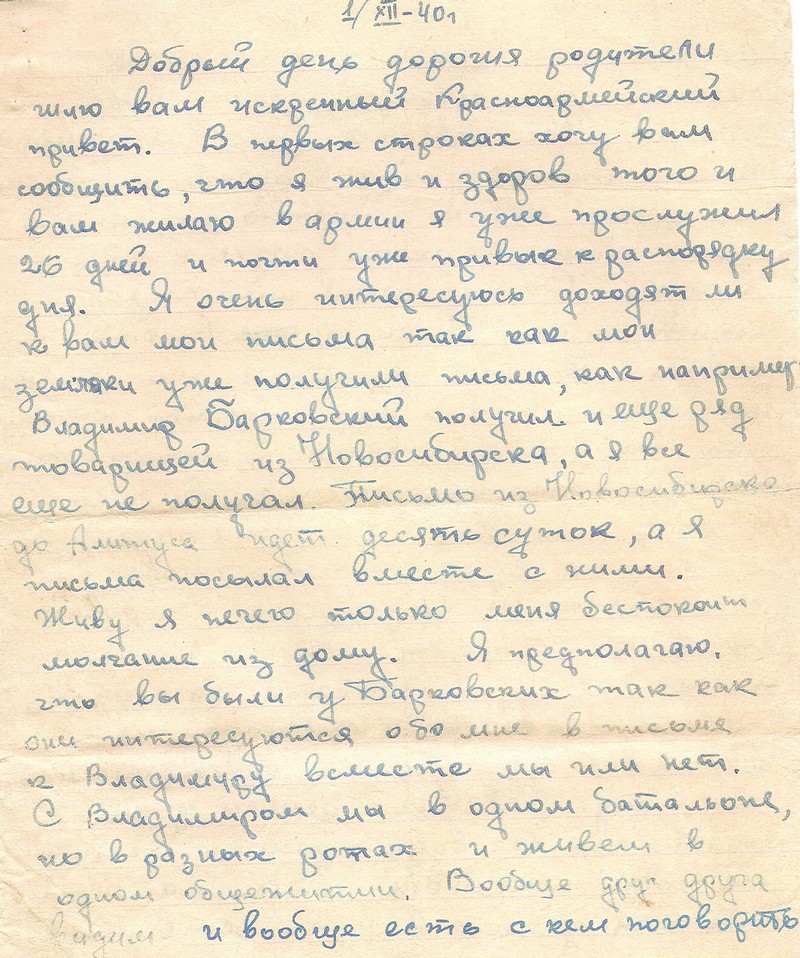 1/XII-40 г
Добрый день дорогия родители
шлю вам искренный Красноармейский
привет. В первых строках хочу вам
сообщить, что я жив и здоров того и
вам жилаю в армии я уже прослужил
26 дней и почти уже привык к распорядку
дня. Я очень интересуюсь доходят ли
к вам мои письма так как мои
земляки уже получили письма, как например
Владимир Барковский получил. и еще ряд
товарищей из Новосибирска, а я все
еще не получал. Письмо из Новосибирска
до Алитуса идет десять суток, а я
письма посылал вместе с ними.
Живу я нечего только меня беспокоит
молчание из дому. Я предполагаю,
что вы были у Барковских так как
они интересуются обо мне в письме
к Владимиру вместе мы или нет.
С Владимиром мы в одном батальоне,
но в разных ротах и живем в
одном общежитии. Вообще друг друга
вадим и вообще есть с кем поговорить